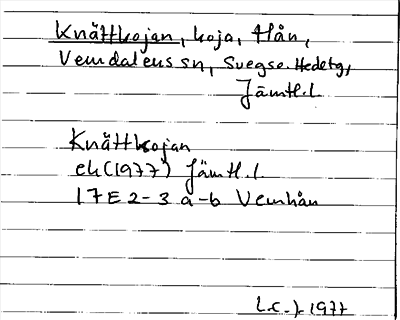 Knättkojan, koja, Hån,
Vemdalens sn, Svegs o. Hedetg,
Jämtl. l
Knättkojan
ek (1977) Jämtl. l
17E 2-3 a-b Vemhån
L.C.J. 1977